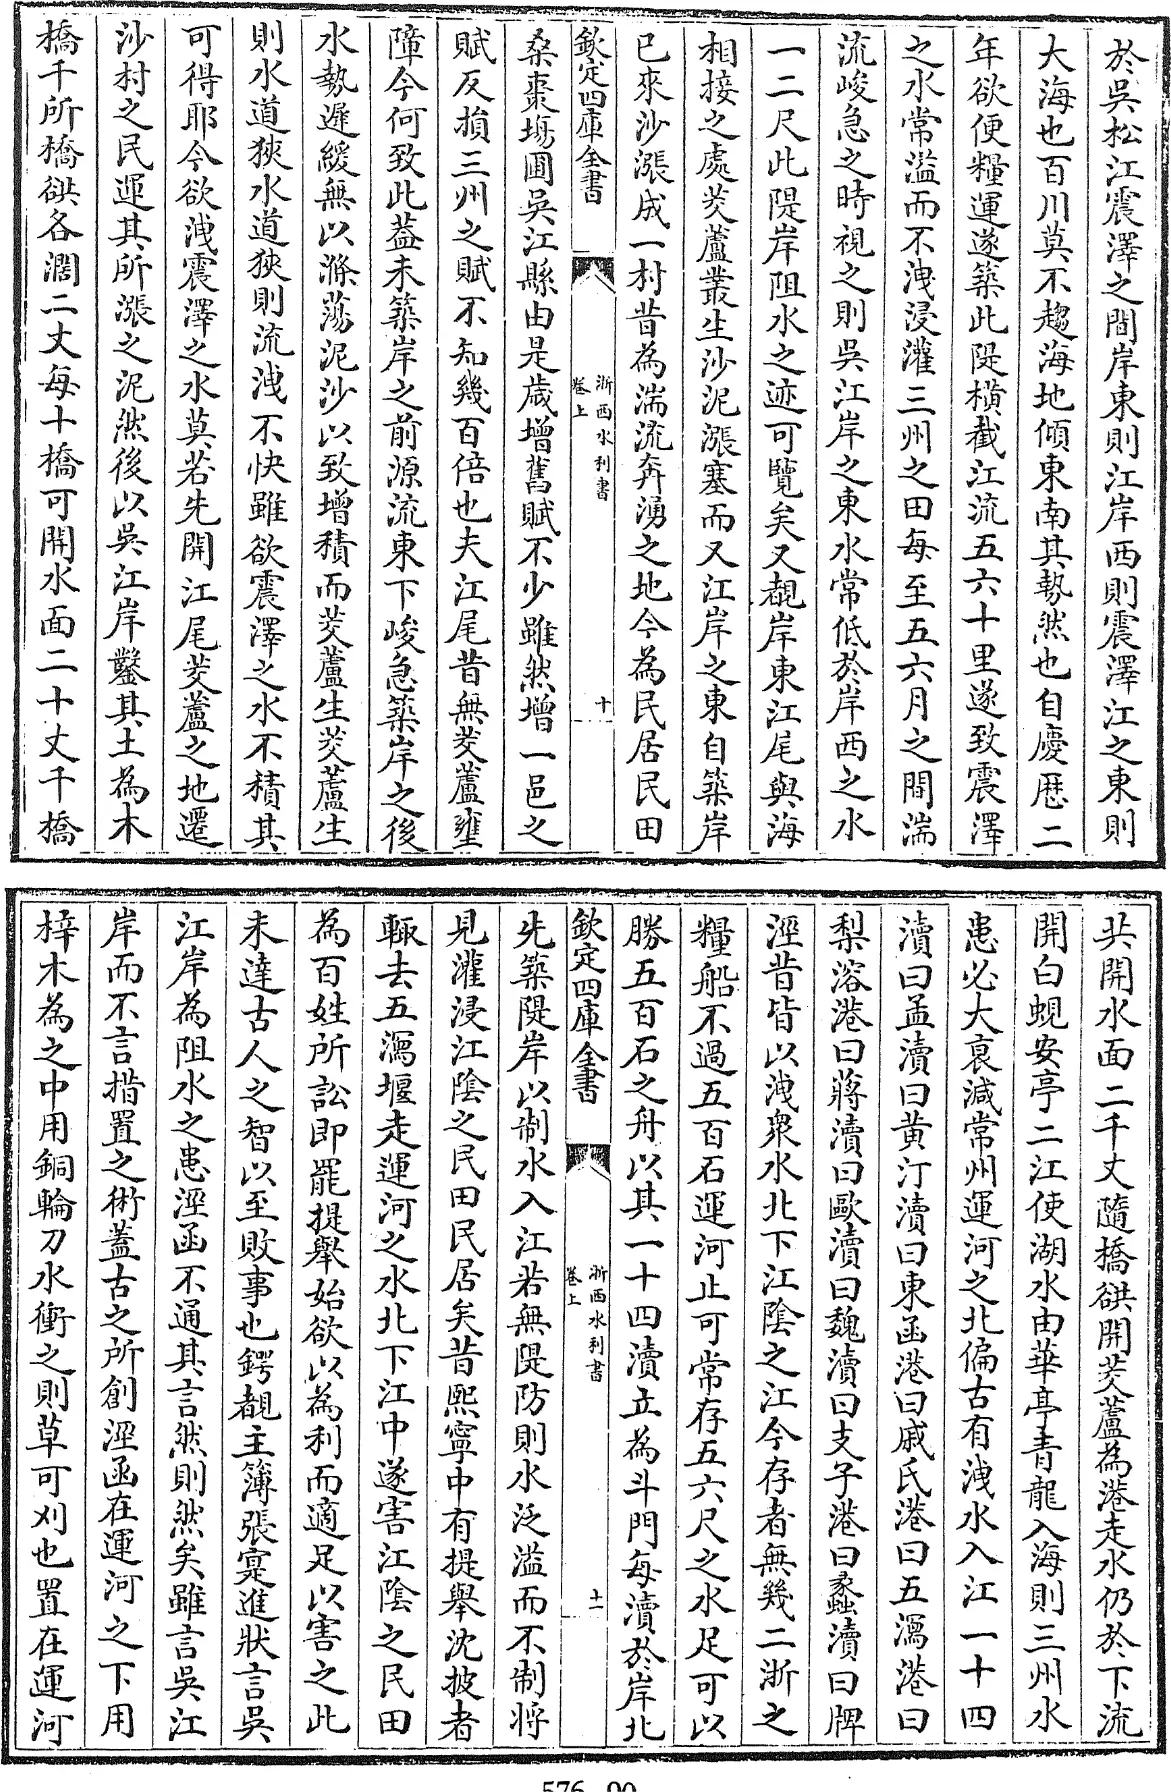 於吳松江震澤之間岸東則江岸西則震澤江之東則
大海也百川莫不趨海地傾東南其勢然也自慶厯二
年欲便糧運遂築此隄橫截江流五六十里遂致震澤
之水常溢而不洩浸灌三州之田每至五六月之間湍
流峻急之時視之則吳江岸之東水常低於岸西之水
一二尺此隄岸阻水之迹可覽矣又覩岸東江尾與海
相接之處茭蘆叢生沙泥漲塞而又江岸之東自築岸
已來沙漲成一村昔為湍流奔湧之地今為民居民田
欽定四庫全書
浙西水利書
卷上
十
桑棗塲圃吳江縣由是歳增舊賦不少雖然增一邑之
賦反損三州之賦不知幾百倍也夫江尾昔無茭蘆壅
障今何致此蓋未築岸之前源流東下峻急築岸之後
水勢遲緩無以滌蕩泥沙以致增積而茭蘆生茭蘆生
則水道狹水道狹則流洩不快雖欲震澤之水不積其
可得耶今欲洩震澤之水莫若先開江尾茭蘆之地遷
沙村之民運其所漲之泥然後以吳江岸鑿其土為木
橋千所橋谼各濶二丈每十橋可開水面二十丈千橋
共開水面二千丈隨橋谼開茭蘆為港走水仍於下流
開白蜆安亭二江使湖水由華亭青龍入海則三州水
患必大衰減常州運河之北偏古有洩水入江一十四
瀆曰孟瀆曰黄汀瀆曰東函港曰戚氏港曰五瀉港曰
梨溶港曰蔣瀆曰歐瀆曰魏瀆曰支子港曰蠡瀆曰牌
涇昔皆以洩衆水北下江陰之江今存者無幾二浙之
糧船不過五百石運河止可常存五六尺之水足可以
勝五百石之舟以其一十四瀆立為斗門每瀆於岸北
欽定四庫全書
浙西水利書
卷上
十一
先築隄岸以制水入江若無隄防則水泛溢而不制將
見灌浸江陰之民田民居矣昔熙寧中有提舉沈披者
輙去五瀉堰走運河之水北下江中遂害江陰之民田
為百姓所訟即罷提舉始欲以為利而適足以害之此
未達古人之智以至敗事也鍔覩主簿張寔進狀言吳
江岸為阻水之患涇函不通其言然則然矣雖言吳江
岸而不言措置之術蓋古之所創涇函在運河之下用
梓木為之中用銅輪刀水衝之則草可刈也置在運河